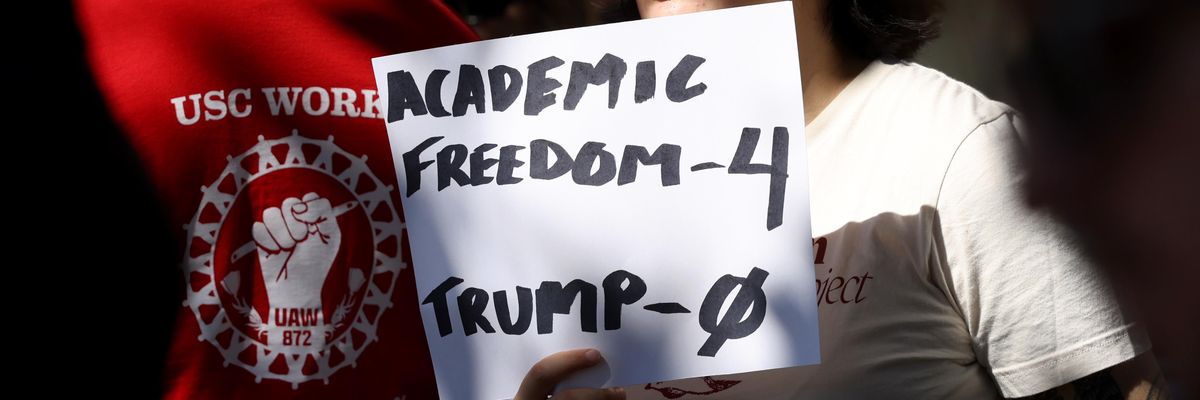 USC WORK
UAW
872
ACADEMIC
FREEDOM-4
TRUMP-Ø
ject